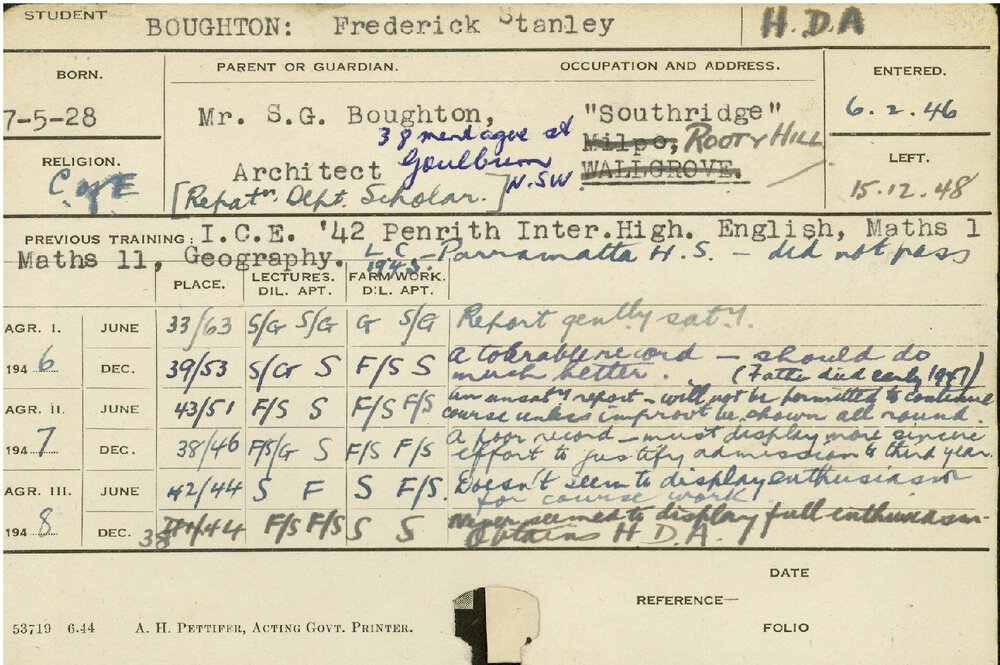 STUDENT BOUGHTON: Frederick Stanley H.D.A
BORN. PARENT OR GUARDIAN. OCCUPATION AND ADDRESS. ENTERED.
7-5-28 Mr. S.G. Boughton, "Southridge" 6.2.46
38 st Milpo, ROOTY HILL
RELIGION. Architect Goulburn WALLGROVE. LEFT.
C of E N.S.W. 15.12.48
[Repatn. Dept. Scholar.]
PREVIOUS TRAINING: I.C.E. '42 Penrith Inter.High. English, Maths 1
Maths 11, Geography. L.C. 1945 - Parramatta H.S. - did not pass
PLACE. LECTURES. FARM WORK.
DIL. APT. DIL. APT.
AGR. I. JUNE 33/63 S/G S/G G S/G Report gen'lly sat'y.
1946 DEC. 39/53 S/G S F/S S A tolerable record - should do
much better. (Father died early 1947)
AGR. II. JUNE 43/51 F/S S F/S F/S An unsat'y report - will not be permitted to continue
course unless improv't be shown all round.
1947 DEC. 38/46 F/S/G S F/S F/S A poor record - must display more sincere
effort to justify admission to third year.
AGR. III. JUNE 42/44 S F S F/S. Doesn't seem to display enthusiasm
for course work
1948 DEC. 38/44 F/S F/S S S Never seemed to display full enthusiasm-
Obtains H.D.A.
DATE
REFERENCE—
53719 6.44 A. H. PETTIFER, ACTING GOVT. PRINTER. FOLIO